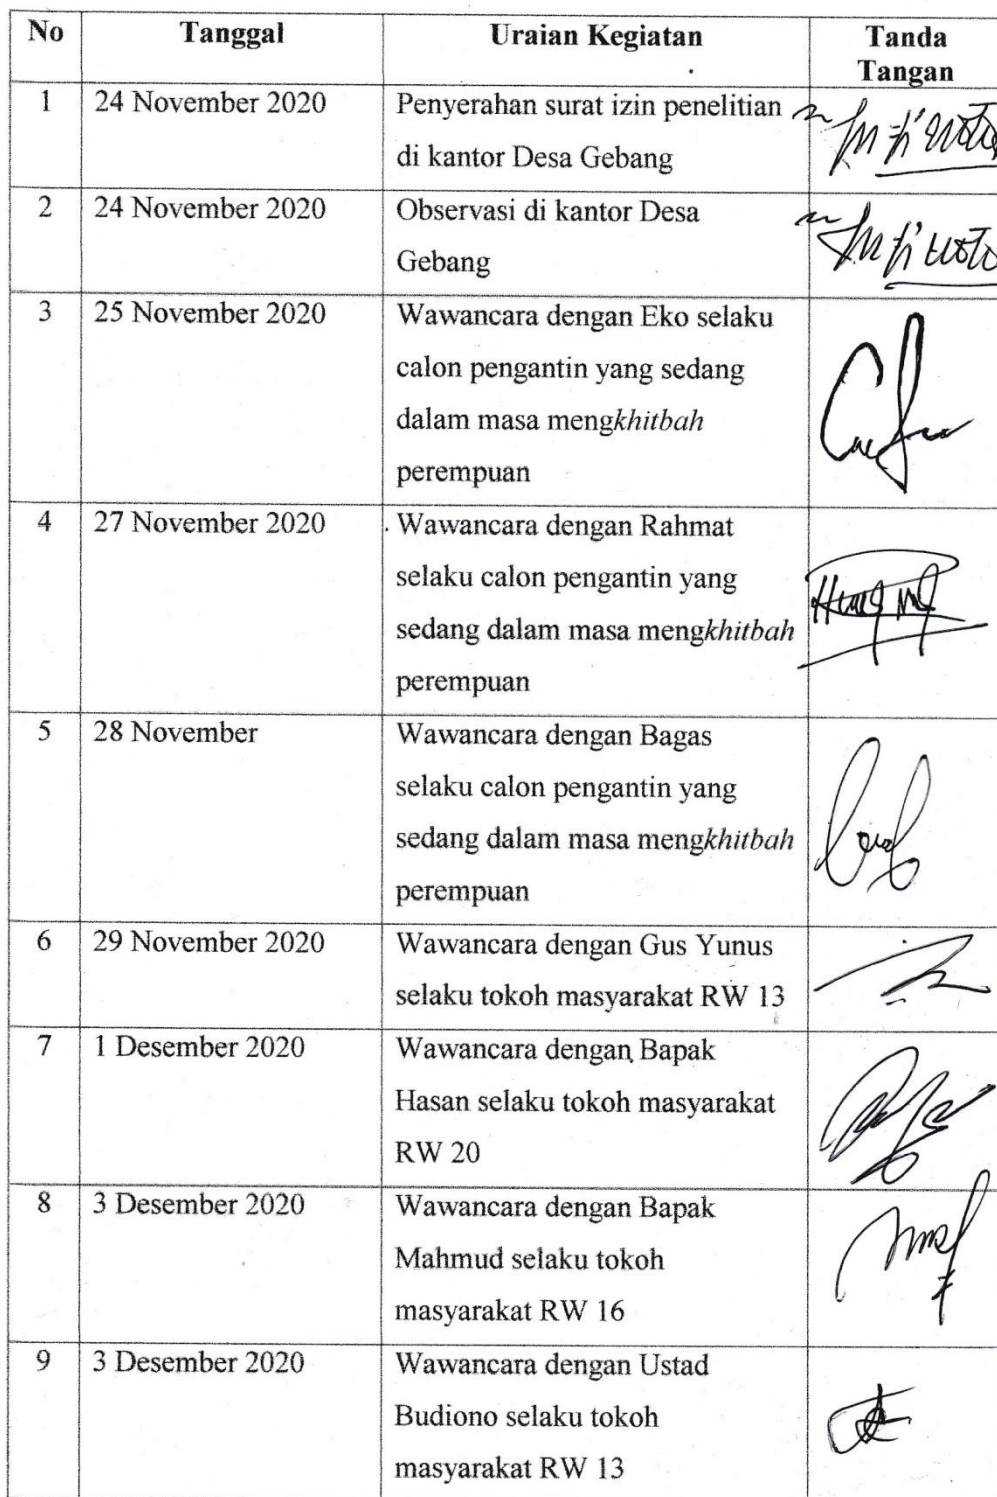 No Tanggal Uraian Kegiatan Tanda
Tangan
1 24 November 2020 Penyerahan surat izin penelitian
di kantor Desa Gebang
2 24 November 2020 Observasi di kantor Desa
Gebang
3 25 November 2020 Wawancara dengan Eko selaku
calon pengantin yang sedang
dalam masa mengkhitbah
perempuan
4 27 November 2020 Wawancara dengan Rahmat
selaku calon pengantin yang
sedang dalam masa mengkhitbah
perempuan
5 28 November Wawancara dengan Bagas
selaku calon pengantin yang
sedang dalam masa mengkhitbah
perempuan
6 29 November 2020 Wawancara dengan Gus Yunus
selaku tokoh masyarakat RW 13
7 1 Desember 2020 Wawancara dengan Bapak
Hasan selaku tokoh masyarakat
RW 20
8 3 Desember 2020 Wawancara dengan Bapak
Mahmud selaku tokoh
masyarakat RW 16
9 3 Desember 2020 Wawancara dengan Ustad
Budiono selaku tokoh
masyarakat RW 13